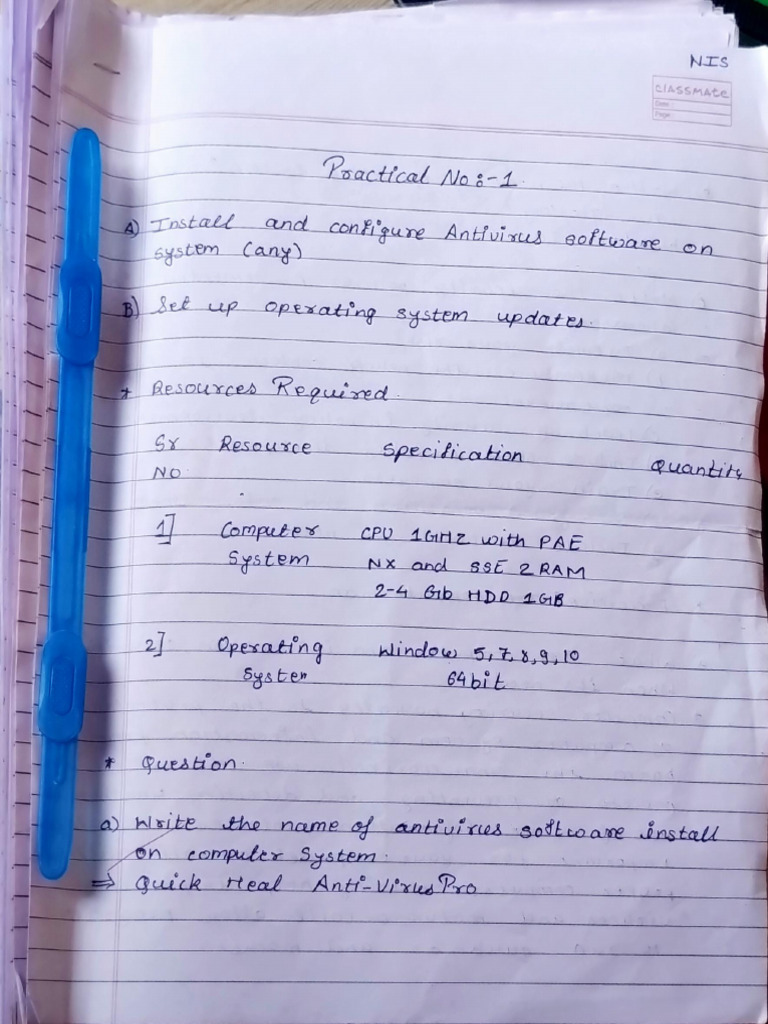 NIS
CLASSMATE
Date :
Page :
Practical No :- 1.
A) Install and configure Antivirus software on
system (any)
B) Set up operating system updates.
* Resources Required.
Sr Resource Specification Quantity
NO.
1] Computer CPU 1GHZ with PAE
System NX and SSE 2 RAM
2-4 Gb HDD 1GB
2] Operating Window 5,7,8,9,10
System 64bit
* Question.
a) Write the name of antivirus software install
on computer System.
⇒ Quick Heal Anti-Virus Pro